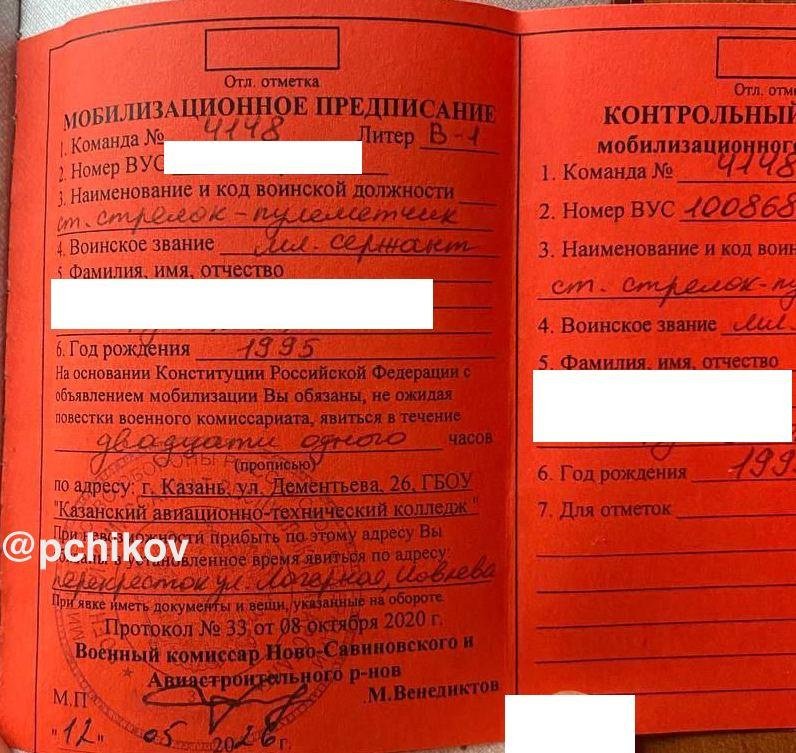 Отл. отметка
МОБИЛИЗАЦИОННОЕ ПРЕДПИСАНИЕ
1. Команда № 4148 Литер В-1
2. Номер ВУС
3. Наименование и код воинской должности
ст. стрелок-пулеметчик
4. Воинское звание мл. сержант
5. Фамилия, имя, отчество
6. Год рождения 1995
На основании Конституции Российской Федерации с
объявлением мобилизации Вы обязаны, не ожидая
повестки военного комиссариата, явиться в течение
двадцати одного часов
(прописью)
по адресу: г. Казань, ул. Дементьева, 26, ГБОУ
"Казанский авиационно-технический колледж"
При невозможности прибыть по этому адресу Вы
в установленное время явиться по адресу:
перекресток ул. Лагерная,
При явке иметь документы и вещи, указанные на обороте.
Протокол № 33 от 08 октября 2020 г.
Военный комиссар Ново-Савиновского и
Авиастроительного р-нов
М.П М.Венедиктов
"12" 05 202 г.
@pchikov
Отл. отм
КОНТРОЛЬНЫЙ
мобилизационного
1. Команда № 4148
2. Номер ВУС 100868
3. Наименование и код воин
ст. стрелок-пу
4. Воинское звание мл.
5. Фамилия, имя, отчество
6. Год рождения 1995
7. Для отметок